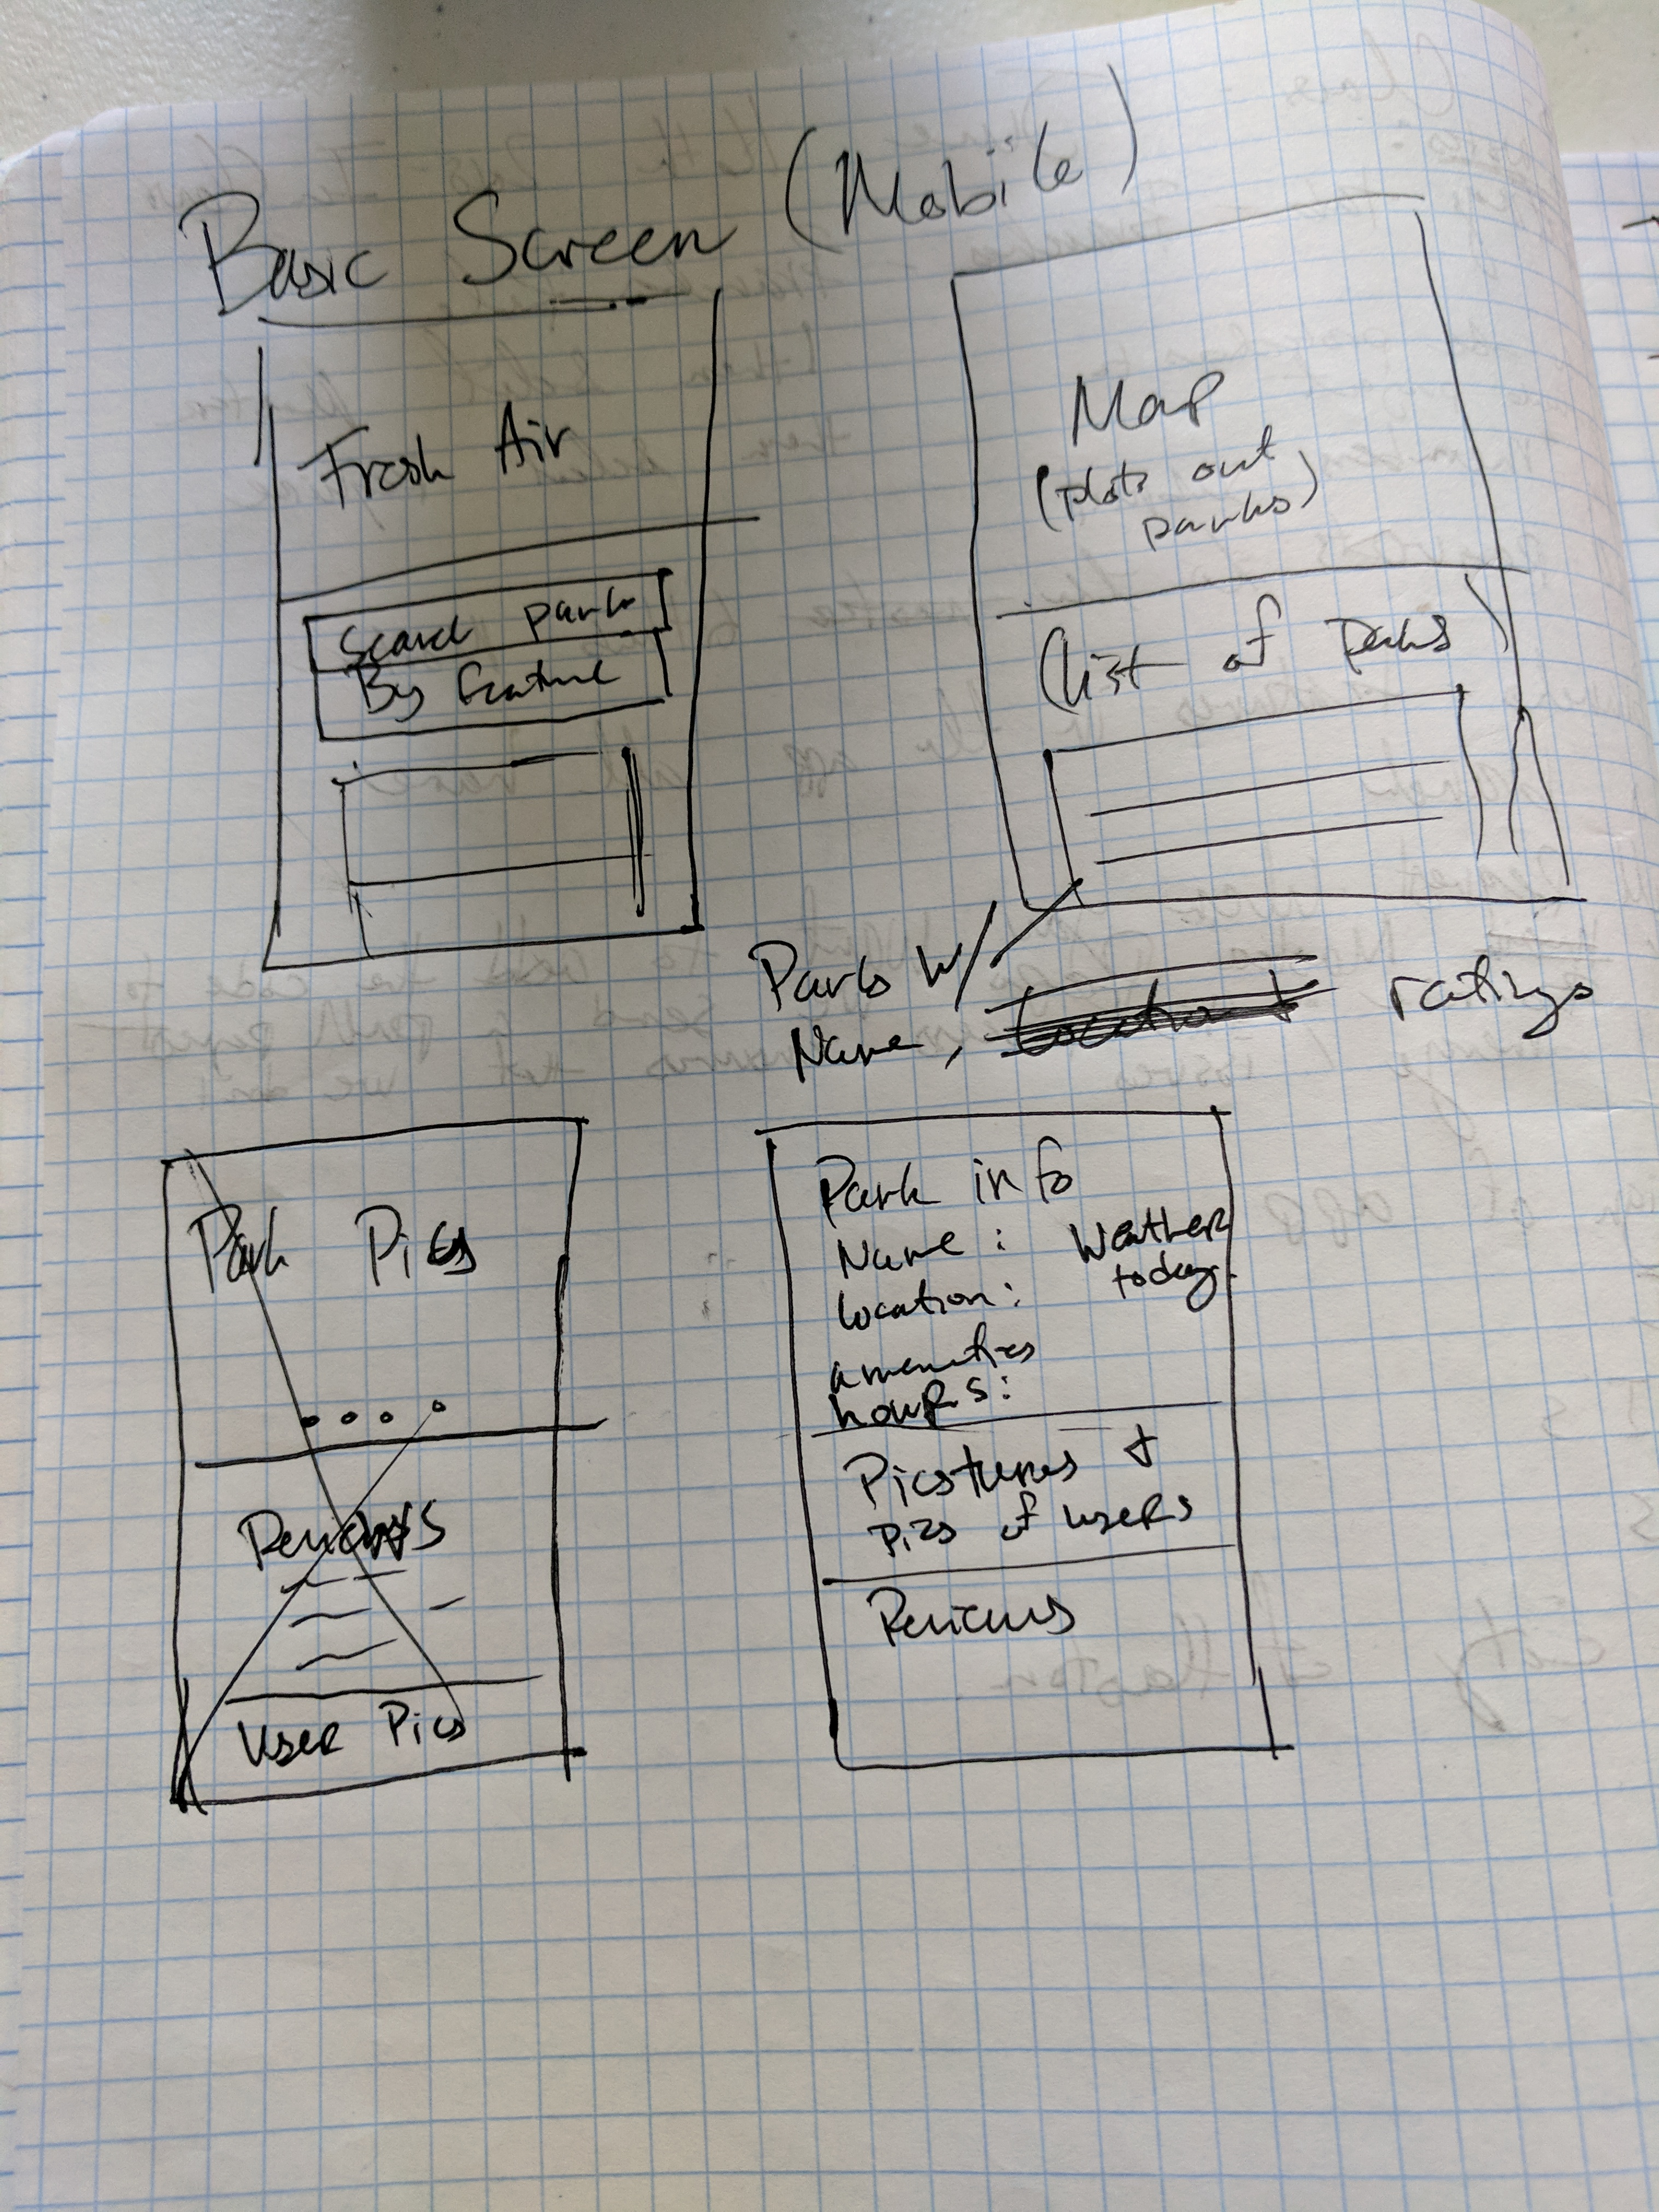 Basic Screen (Mobile)
Fresh Air
Search park
By Feature
Map
(Plots out
parks)
(List of Parks)
Parks w/
Name, ratings
Park Pics
Reviews
User Pics
Park info
Name: Weather
today
location:
amenities
hours:
Picstures +
Pics of users
Reviews